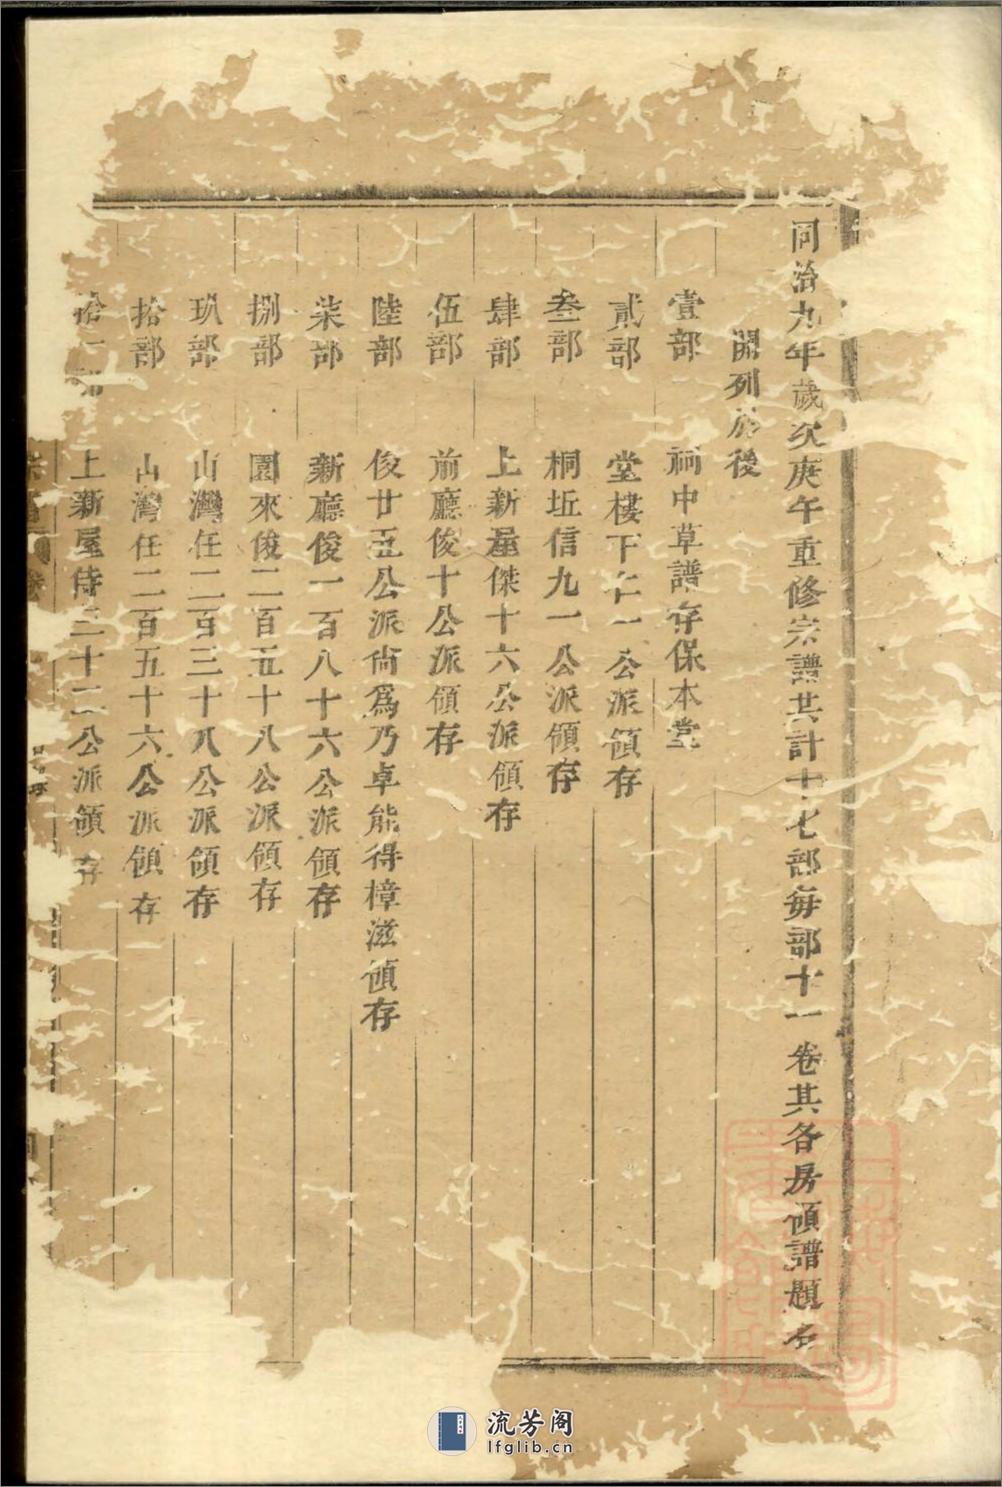 同治九年歲次庚午重修宗譜共計十七部每部十一卷其各房領譜題名
開列於後
壹部 祠中草譜存保本堂
貳部 堂樓下仁一公派領存
叁部 桐坵信九一公派領存
肆部 上新屋傑十六公派領存
伍部 前廳俊十公派領存
陸部 俊廿五公派尙爲乃卓能得樟滋領存
柒部 新廳俊一百八十六公派領存
捌部 園來俊二百五十八公派領存
玖部 山灣任二百三十八公派領存
拾部 山灣任二百五十六公派領存
拾一部 上新屋侍三十二公派領存
流芳阁
lfglib.cn